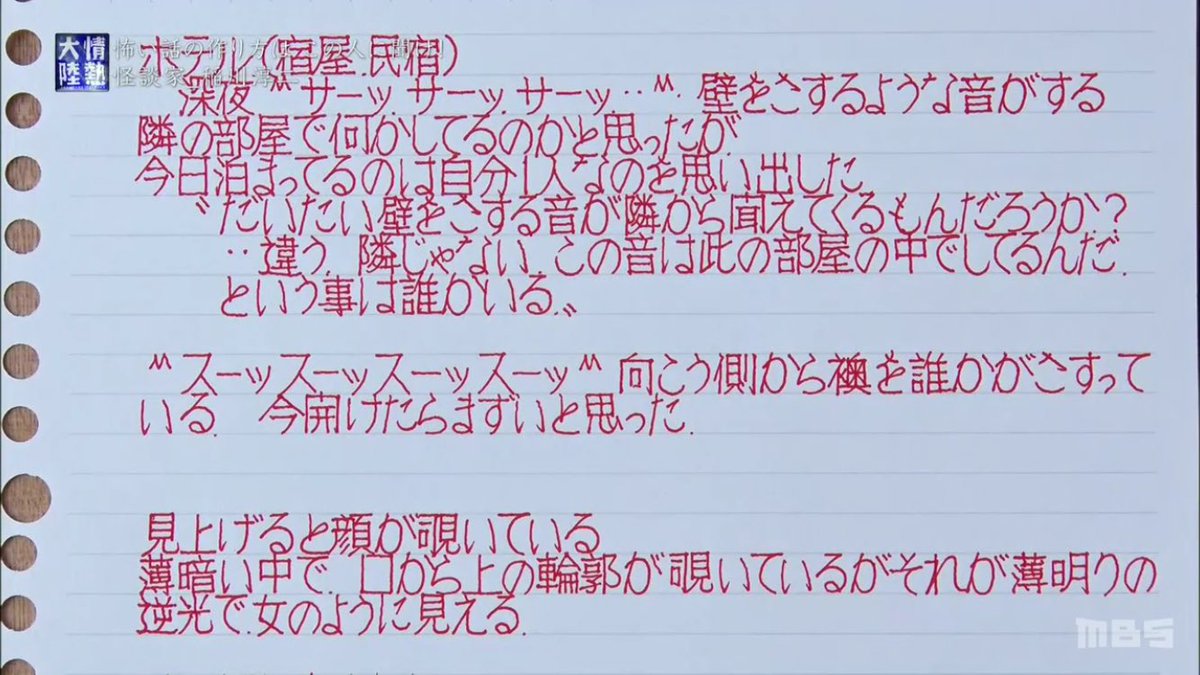 情熱大陸
怖い話の作り方はこの人に聞け!
怪談家 稲川淳二
ホテル(宿屋.民宿)
深夜〝サーッ.サーッ.サーッ‥〟.壁をこするような音がする
隣の部屋で何かしてるのかと思ったが.
今日泊まってるのは自分1人なのを思い出した.
〝だいたい壁をこする音が隣から聞えてくるもんだろうか?
‥違う.隣じゃない.この音は此の部屋の中でしてるんだ.
という事は誰かいる.〟
〝スーッスーッスーッスーッ〟向こう側から襖を誰かがさすって
いる. 今開けたらまずいと思った.
見上げると顔が覗いている
薄暗い中で.口から上の輪郭が覗いているがそれが薄明りの
逆光で.女のように見える.
MBS